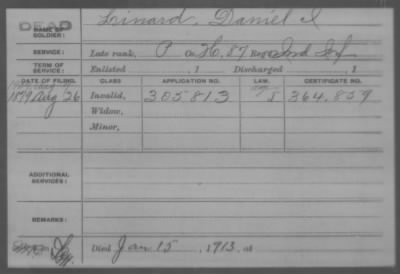 DEAD
NAME OF SOLDIER: Linard, Daniel I
SERVICE: Late rank, P Co. H, 87 Reg't Ind Inf
TERM OF SERVICE: Enlisted , 1 Discharged , 1
DATE OF FILING. CLASS APPLICATION NO. LAW. CERTIFICATE NO.
1879 Aug 26 Invalid, 305813 364,859
Widow,
Minor,
ADDITIONAL SERVICES:
REMARKS:
Died Jan 15, 1913, at